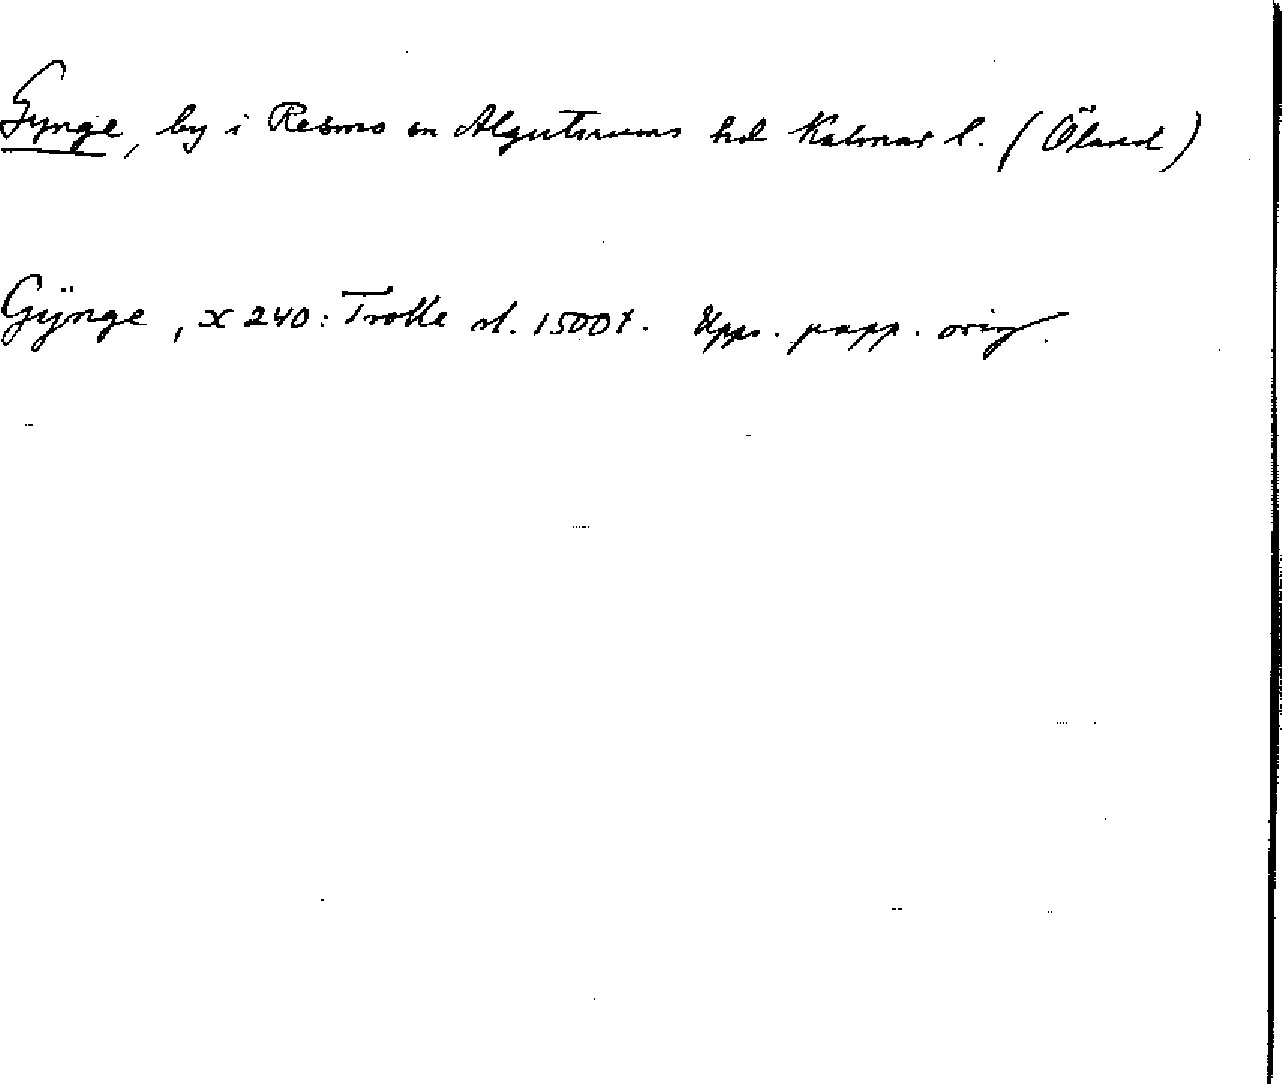 Gynge, by i Resmo sn Algutsrums hd Kalmar l. (Öland)
Gÿnge, x 240: Trolle sl. 1500t. Upps. papp. orig.